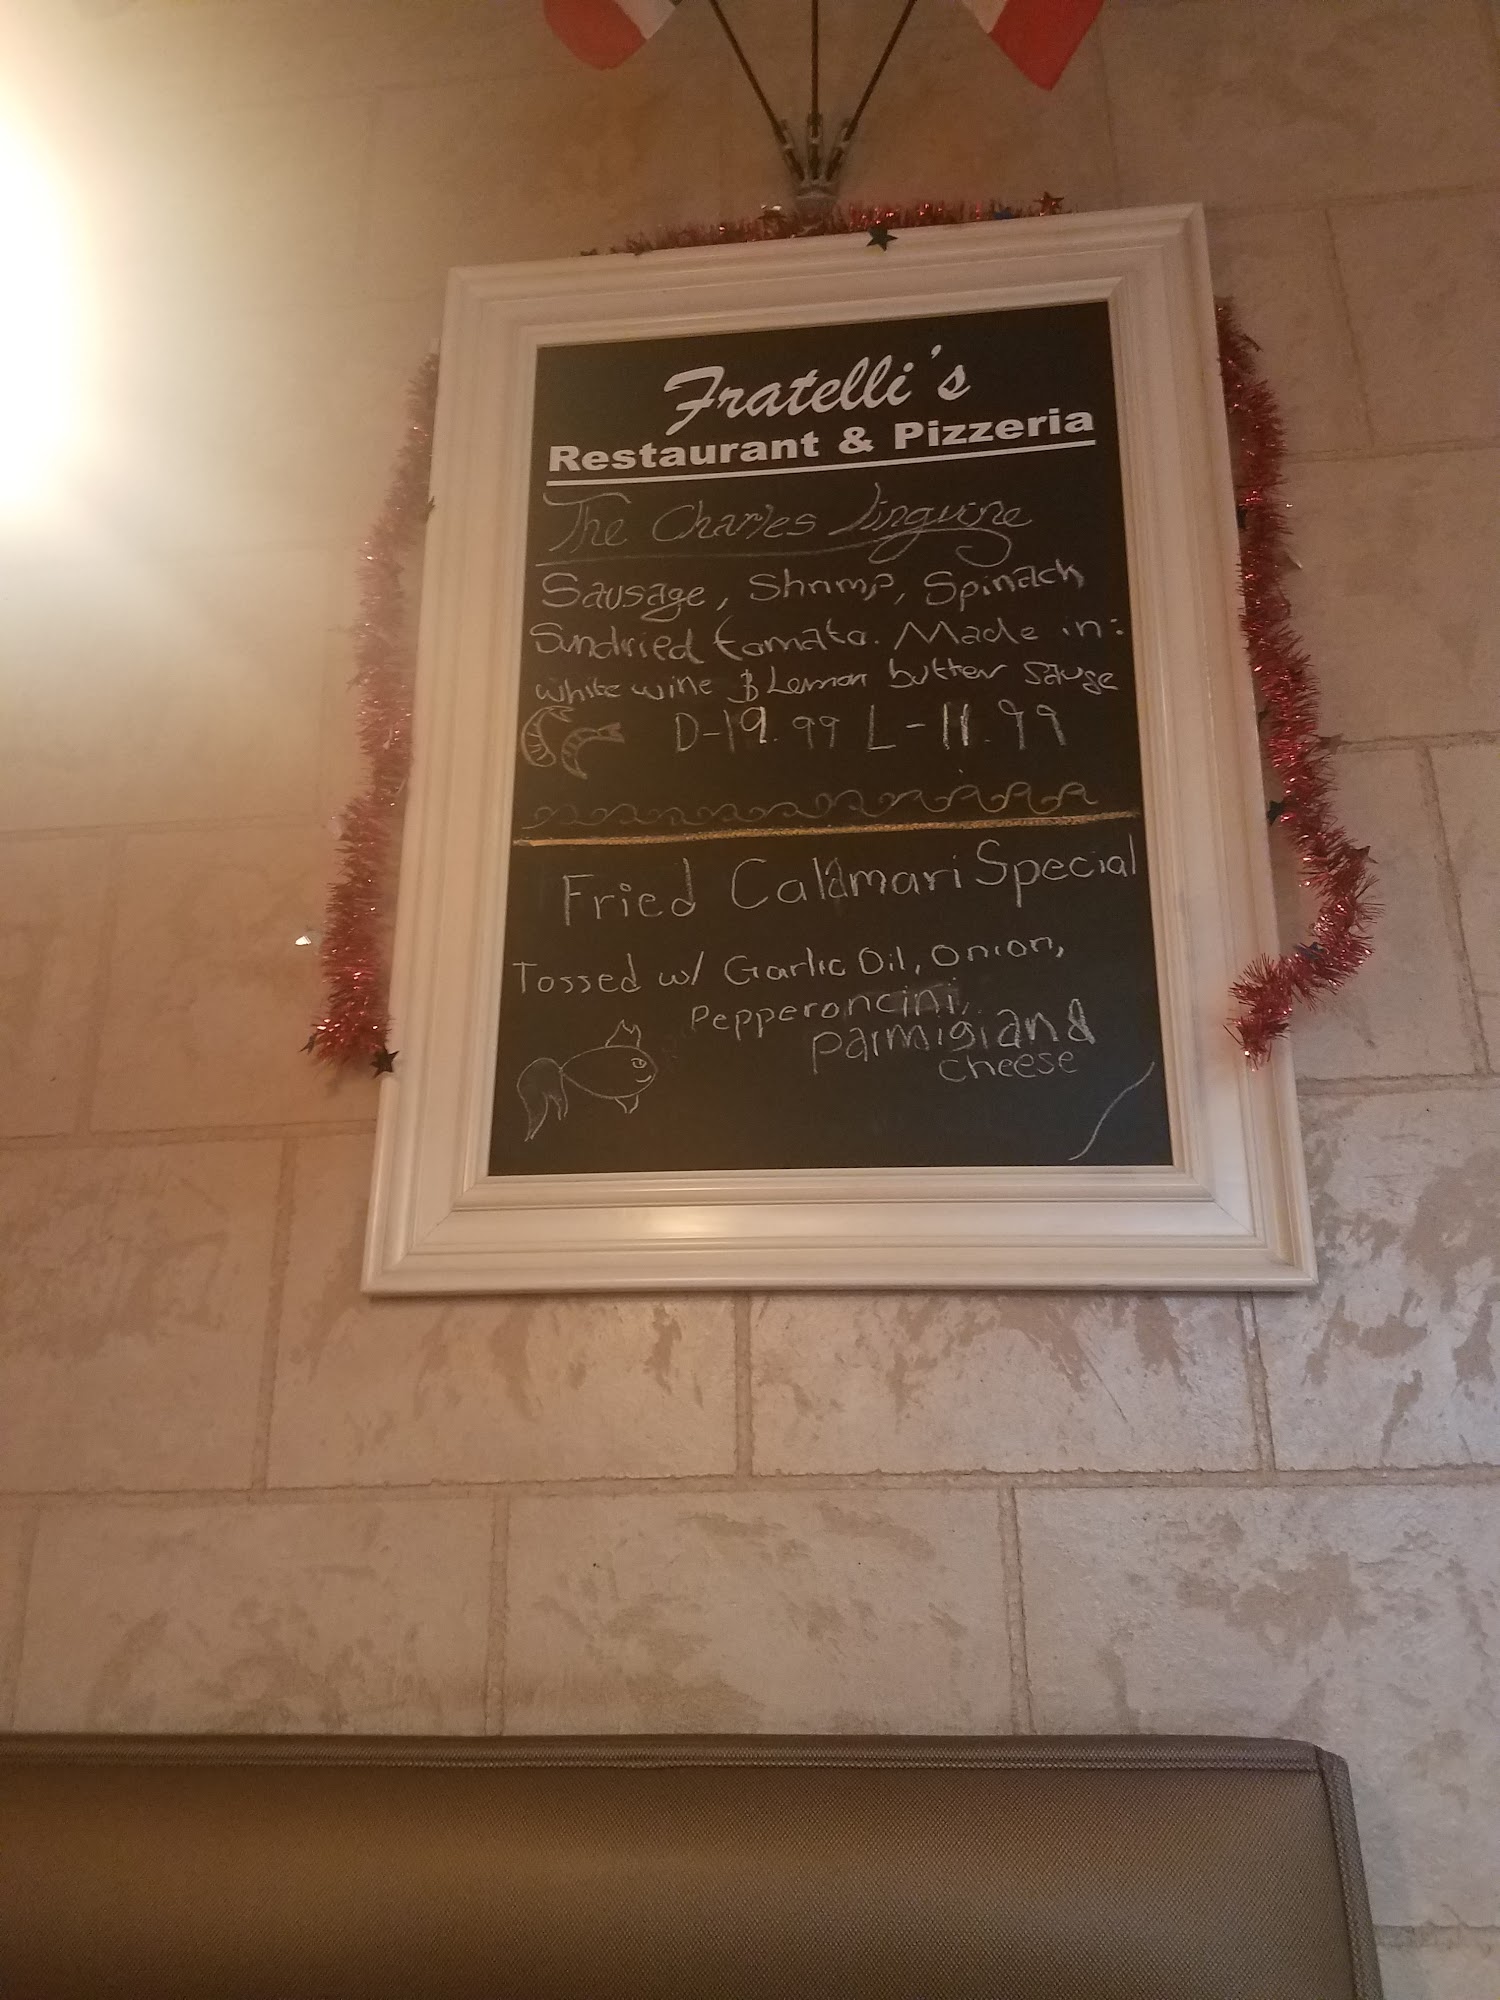 Fratelli's
Restaurant & Pizzeria
The Charles Linguine
Sausage, Shrimp, Spinach
Sundried tomato. Made in:
white wine & Lemon butter sauge
D-19.99 L-11.99
Fried Calamari Special
Tossed w/ Garlic Oil, Onion,
Pepperoncini,
parmigian &
cheese